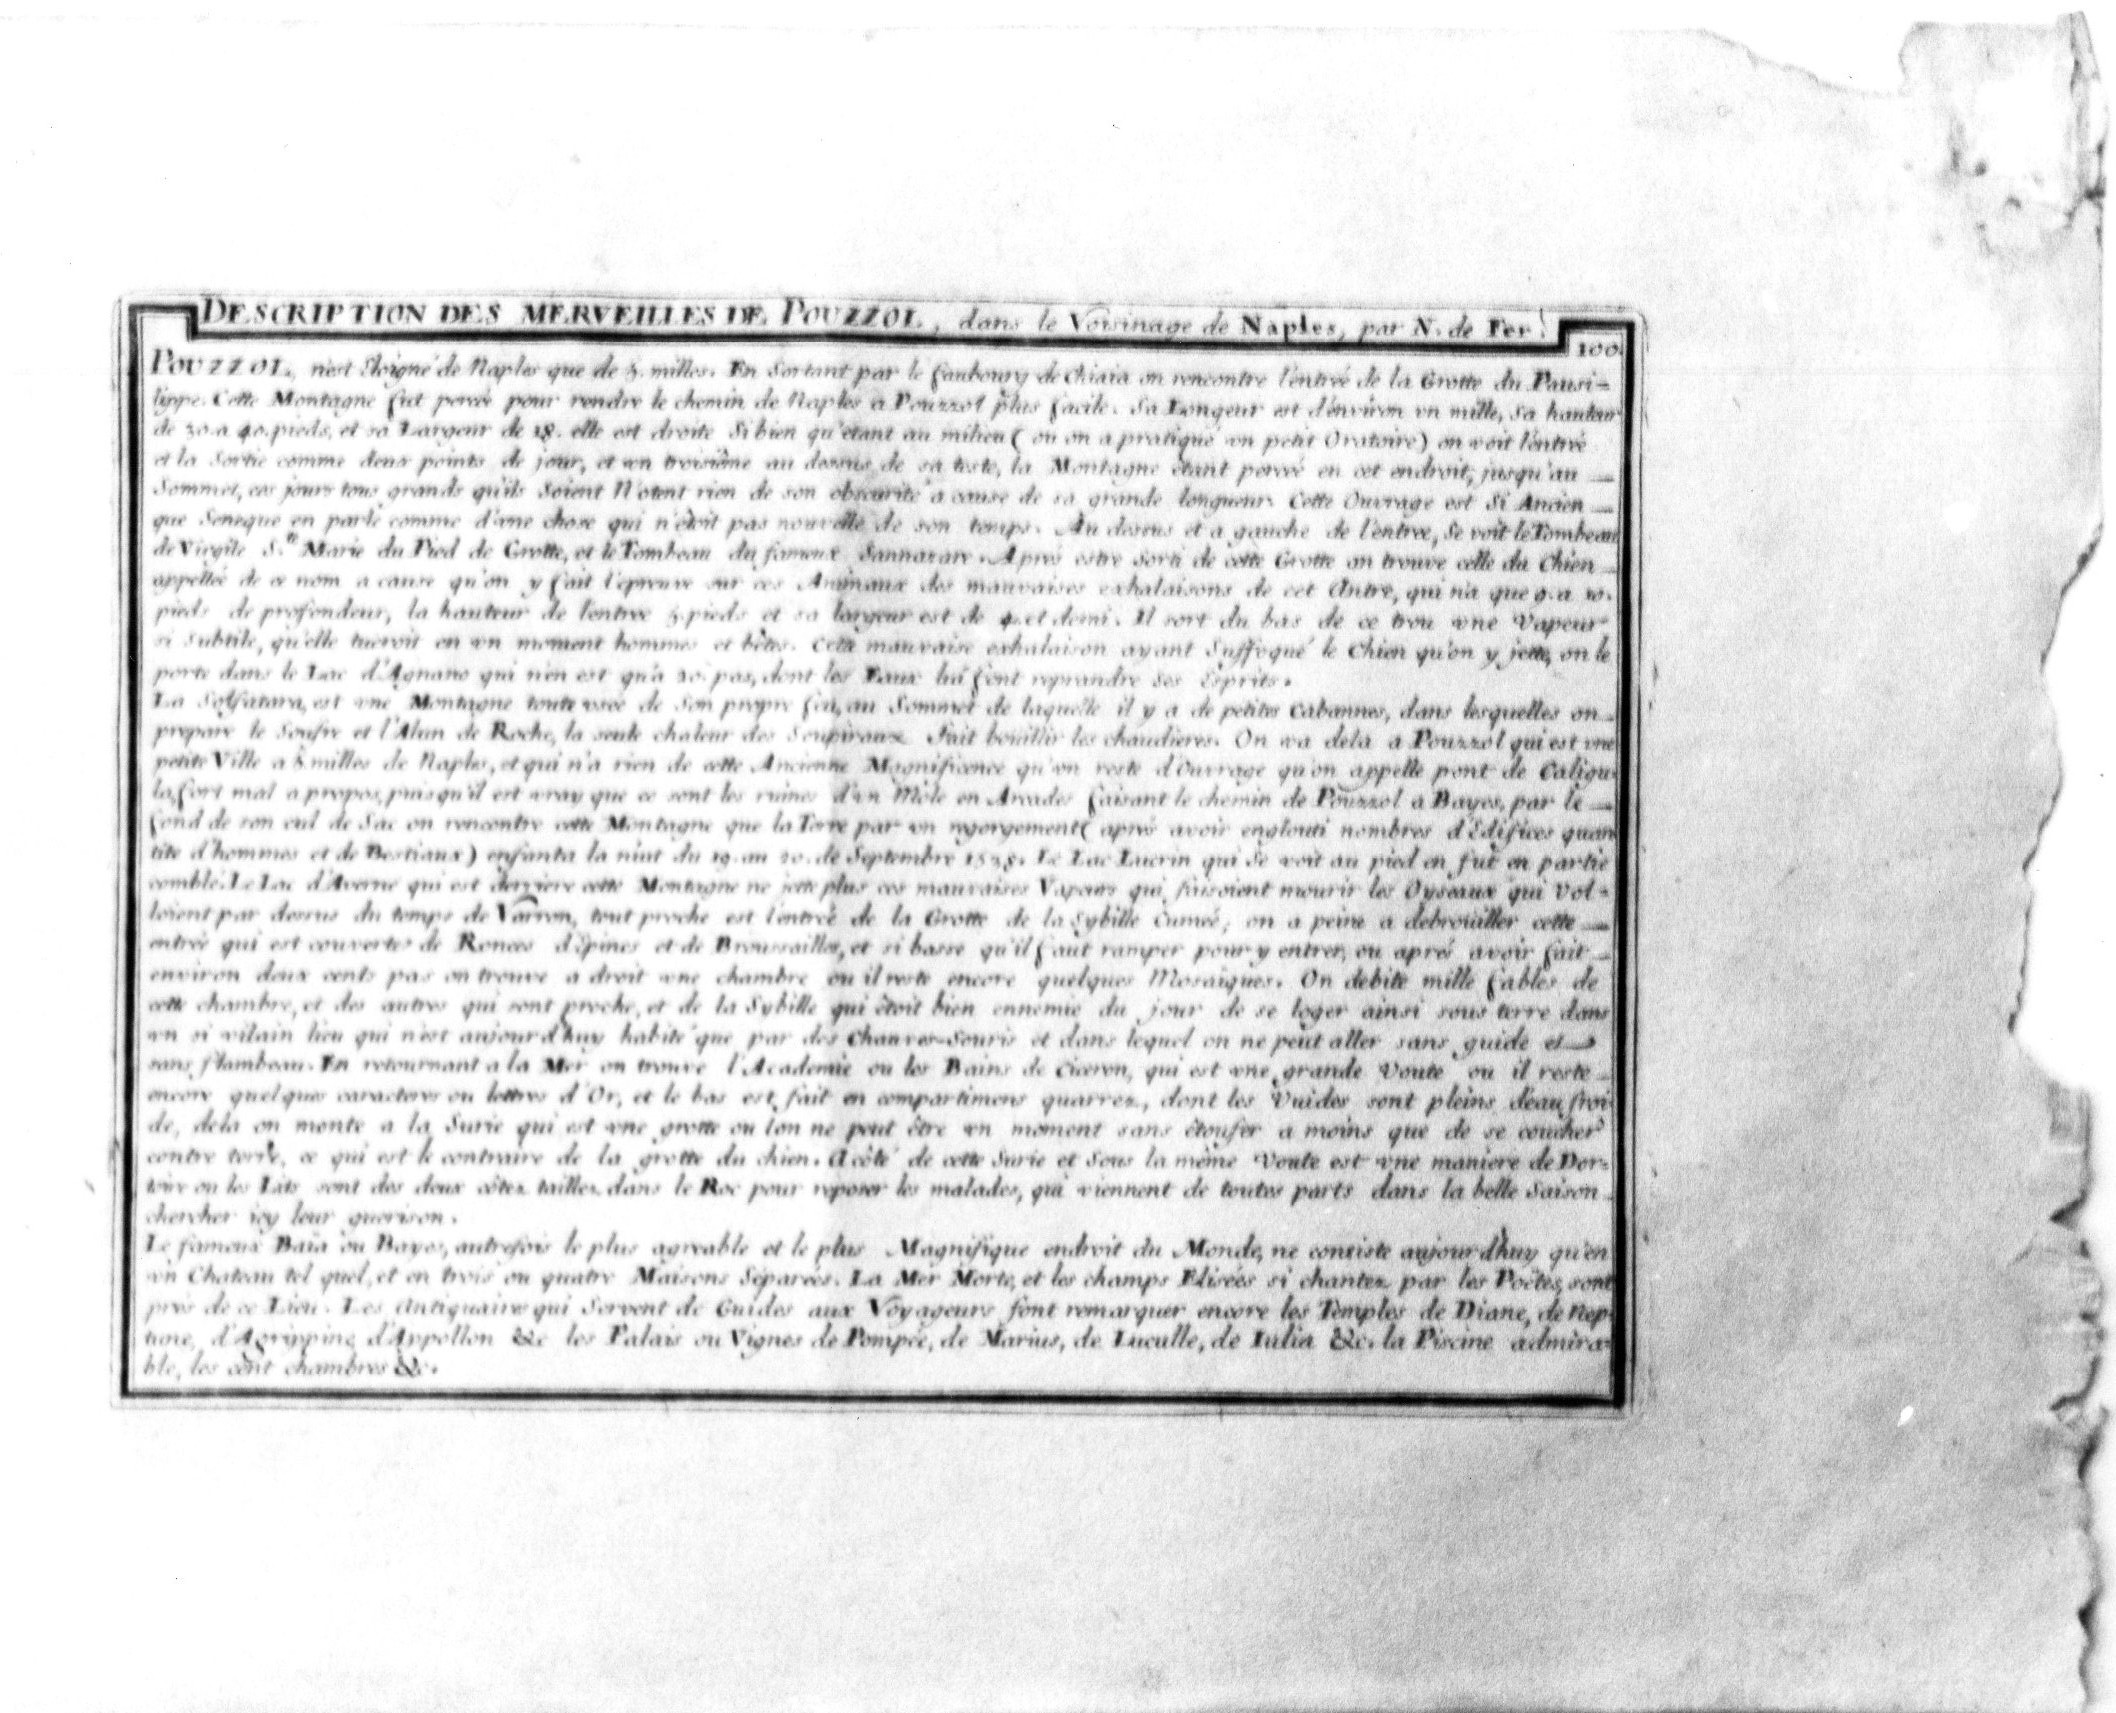 DESCRIPTION DES MERVEILLES DE POUZZOL, dans le Voisinage de Naples, par N. de Fer.
100.
POUZZOL, n'est Eloigné de Naples que de milles. En Sortant par le faubourg de Chiaia on rencontre l'entrée de la Grotte du Pausi=
lippe. Cette Montagne fut percée pour rendre le chemin de Naples a Pouzzol plus facile. Sa Longeur est d'environ vn mille, sa hauteur
de 30. a 40. pieds, et sa Largeur de 18. elle est droite Si bien qu'etant au milieu (ou on a pratiqué vn petit Oratoire) on voit l'entrée
et la Sortie comme deux points de jour, et vn troisiême au dessus de sa teste, la Montagne êtant percée en cet endroit, jusqu'au
Sommet, ces jours tous grands qu'ils Soient N'otent rien de son obscurité a cause de sa grande longueur. Cette Ouvrage est Si Ancien
que Seneque en parle comme d'une chose qui n'êtoit pas nouvelle de son temps. Au dessus et a gauche de l'entree, Se voit le Tombeau
de Virgile S.te Marie du Pied de Grotte, et le Tombeau du fameux Sannazare. Aprés estre Sorti de cette Grotte on trouve celle du Chien
appellée de ce nom a cause qu'on y fait l'epreuve sur ces Animaux des mauvaises exhalaisons de cet Antre, qui n'a que 9. a 10.
pieds de profondeur, la hauteur de l'entree pieds et sa largeur est de 4. et demi. Il sort du bas de ce trou vne Vapeur
si Subtile, qu'elle tueroit en vn moment hommes et bêtes. Cette mauvaise exhalaison ayant Suffoqué le Chien qu'on y jette, on le
porte dans le Lac d'Agnano qui n'en est qu'a 20. pas, dont les Eaux lui font reprandre Ses Esprits.
La Solfatara, est vne Montagne toute vsée de Son propre feu, au Sommet de laquelle il y a de petites Cabannes, dans lesquelles on
prepare le Soufre et l'Alun de Roche, la seule chaleur des Soupiraux Fait boüillir les chaudieres. On va dela a Pouzzol qui est vne
petite Ville a milles de Naples, et qui n'a rien de cette Ancienne Magnificence qu'vn reste d'Ouvrage qu'on appelle pont de Caligu-
la, fort mal a propos, puisqu'il est vray que ce sont les ruines d'vn Môle en Arcades faisant le chemin de Pouzzol a Bayes, par le
fond de son cul de Sac on rencontre cette Montagne que la Terre par vn regorgement (aprés avoir englouti nombres d'Edifices quan
tité d'hommes et de Bestiaux) enfanta la nuit du 19. au 20. de Septembre 1538. Le Lac Lucrin qui Se voit au pied en fut en partie
comblé. Le Lac d'Averne qui est derriere cette Montagne ne jette plus ces mauvaises Vapeurs qui faisoient mourir les Oyseaux qui Vol=
loient par dessus du temps de Varron, tout proche est l'entrée de la Grotte de la Sybille Cumeé; on a peine a debroüiller cette
entrée qui est couvertes de Ronces d'Epines et de Broussailles, et si basse qu'il faut ramper pour y entrer, ou aprés avoir fait
environ deux cents pas on trouve a droit vne chambre ou il reste encore quelques Mosaïques. On debite mille fables de
cette chambre, et des autres qui sont proche, et de la Sybille qui êtoit bien ennemie du jour de se loger ainsi sous terre dans
vn si vilain lieu qui n'est aujourd'huy habité que par des Chauves-Souris et dans lequel on ne peut aller sans guide et
sans flambeau. En retournant a la Mer on trouve l'Academie ou les Bains de Ciceron, qui est vne grande Voute ou il reste
encore quelques caracteres ou lettres d'Or, et le bas est fait en compartimens quarrez, dont les Vuides sont pleins d'eau froi
de, dela on monte a la Surie qui est vne grotte ou l'on ne peut être vn moment sans êtoufer a moins que de se coucher
contre terre, ce qui est le contraire de la grotte du chien. A côté de cette Surie et Sous la même Voute est vne maniere de Dor=
toire ou les Lits sont des deux côtez taillez dans le Roc pour reposer les malades, qui viennent de toutes parts dans la belle Saison
chercher icy leur guerison.
Le fameux Baïa ou Bayes, autrefois le plus agreable et le plus Magnifique endroit du Monde, ne consiste aujourd'huy qu'en
vn Chateau tel quel, et en trois ou quatre Maisons Séparées. La Mer Morte, et les champs Elisées si chantez par les Poëtes, sont
prés de ce Lieu. Les Antiquaires qui Servent de Guides aux Voyageurs font remarquer encore les Temples de Diane, de Nep-
tune, d'Agrippine, d'Appollon &c les Palais ou Vignes de Pompée, de Marius, de Luculle, de Iulia &c. la Piscine admira=
ble, les cent chambres &c.